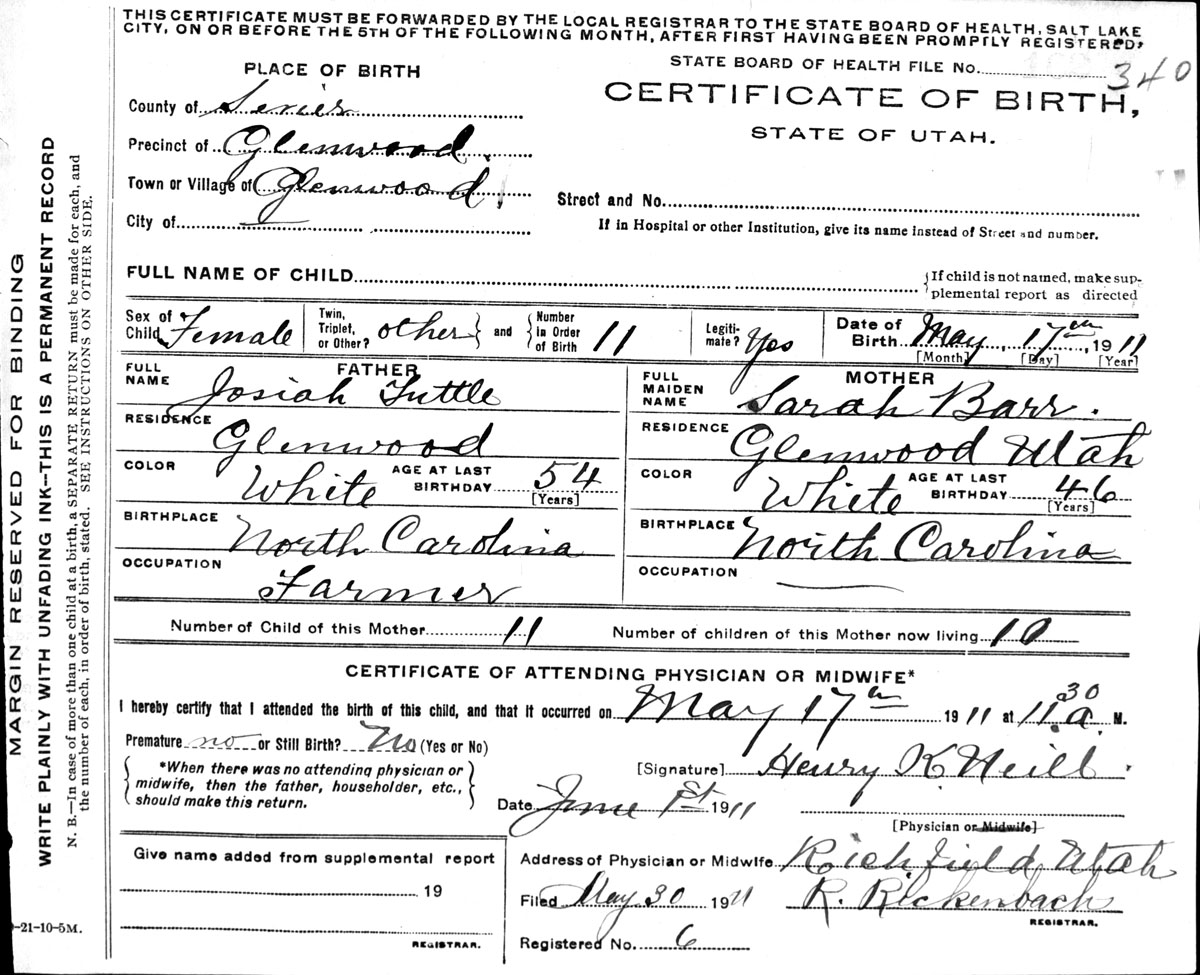 THIS CERTIFICATE MUST BE FORWARDED BY THE LOCAL REGISTRAR TO THE STATE BOARD OF HEALTH, SALT LAKE
CITY, ON OR BEFORE THE 5TH OF THE FOLLOWING MONTH, AFTER FIRST HAVING BEEN PROMPTLY REGISTERED,
PLACE OF BIRTH
STATE BOARD OF HEALTH FILE No. 340
CERTIFICATE OF BIRTH,
STATE OF UTAH.
County of Sevier
Precinct of Glenwood.
Town or Village of Glenwood.
City of
Street and No.
If in Hospital or other Institution, give its name instead of Street and number.
FULL NAME OF CHILD
{If child is not named, make sup-
plemental report as directed
Sex of Child Female
Twin, Triplet, or Other? other } and { Number in Order of Birth 11
Legiti-mate? Yes
Date of Birth May, 17th, 1911
[Month] [Day] [Year]
FATHER
FULL NAME Josiah Tuttle
RESIDENCE Glenwood
COLOR White AGE AT LAST BIRTHDAY 54
[Years]
BIRTHPLACE North Carolina
OCCUPATION Farmer
MOTHER
FULL MAIDEN NAME Sarah Barr.
RESIDENCE Glenwood Utah
COLOR White AGE AT LAST BIRTHDAY 46
[Years]
BIRTHPLACE North Carolina
OCCUPATION —
Number of Child of this Mother 11 Number of children of this Mother now living 10
CERTIFICATE OF ATTENDING PHYSICIAN OR MIDWIFE*
I hereby certify that I attended the birth of this child, and that it occurred on May 17th 1911 at 11.30 a. M.
Premature no or Still Birth? No (Yes or No)
{ *When there was no attending physician or
midwife, then the father, householder, etc.,
should make this return. }
[Signature] Henry K Neill.
Date June 1st 1911
[Physician or Midwife]
Address of Physician or Midwife Richfield Utah
Give name added from supplemental report
19
REGISTRAR.
Filed May 30 1911 R. Rickenbach
REGISTRAR.
Registered No. 6
-21-10-5M.
MARGIN RESERVED FOR BINDING
WRITE PLAINLY WITH UNFADING INK—THIS IS A PERMANENT RECORD
N. B.—In case of more than one child at a birth, a SEPARATE RETURN must be made for each, and
the number of each, in order of birth, stated. SEE INSTRUCTIONS ON OTHER SIDE.